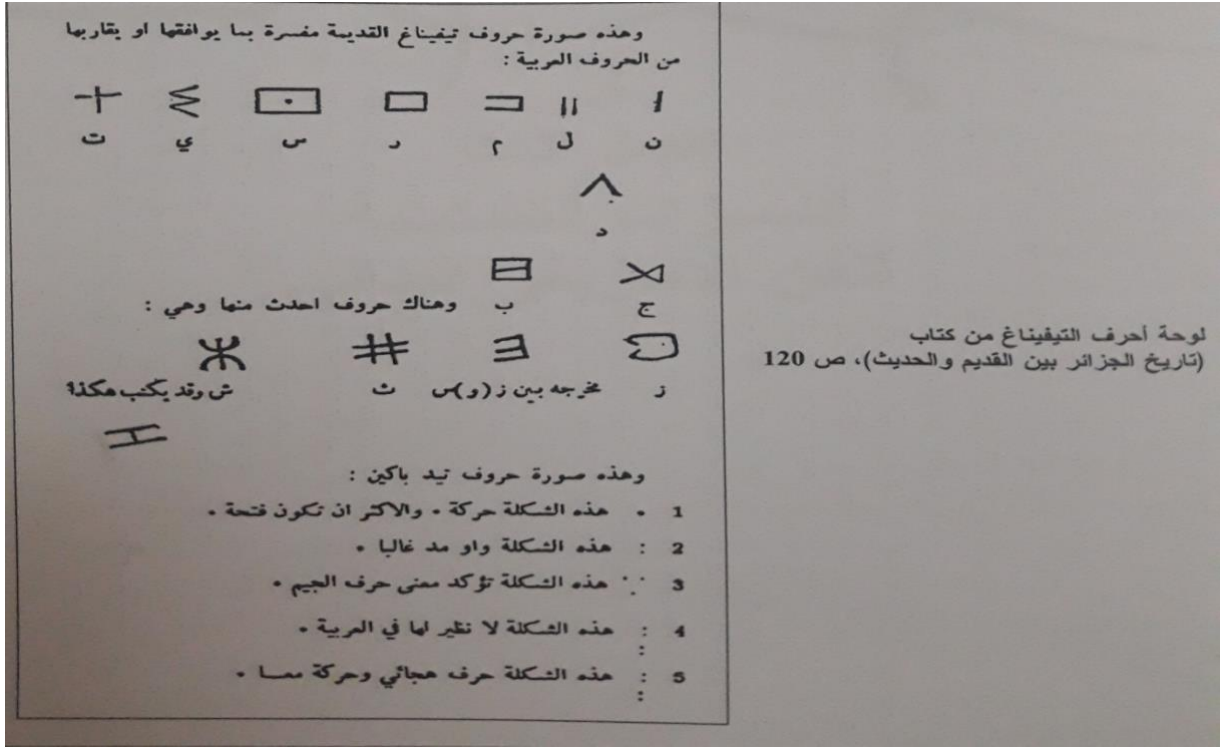 وهذه صورة حروف تيفيناغ القديمة مفسرة بما يوافقها او يقاربها
من الحروف العربية :
ن ل م ر س ي ت
د
ج ب وهناك حروف احدث منها وهي :
ز مخرجه بين ز (و)س ث ش وقد يكتب هكذا؟
وهذه صورة حروف تيد باكين :
1 . هذه الشكلة حركة . والاكثر ان تكون فتحة .
2 : هذه الشكلة واو مد غالبا .
3 هذه الشكلة تؤكد معنى حرف الجيم .
4 : هذه الشكلة لا نظير لها في العربية .
5 : هذه الشكلة حرف هجائي وحركة معا .
لوحة أحرف التيفيناغ من كتاب
(تاريخ الجزائر بين القديم والحديث)، ص 120